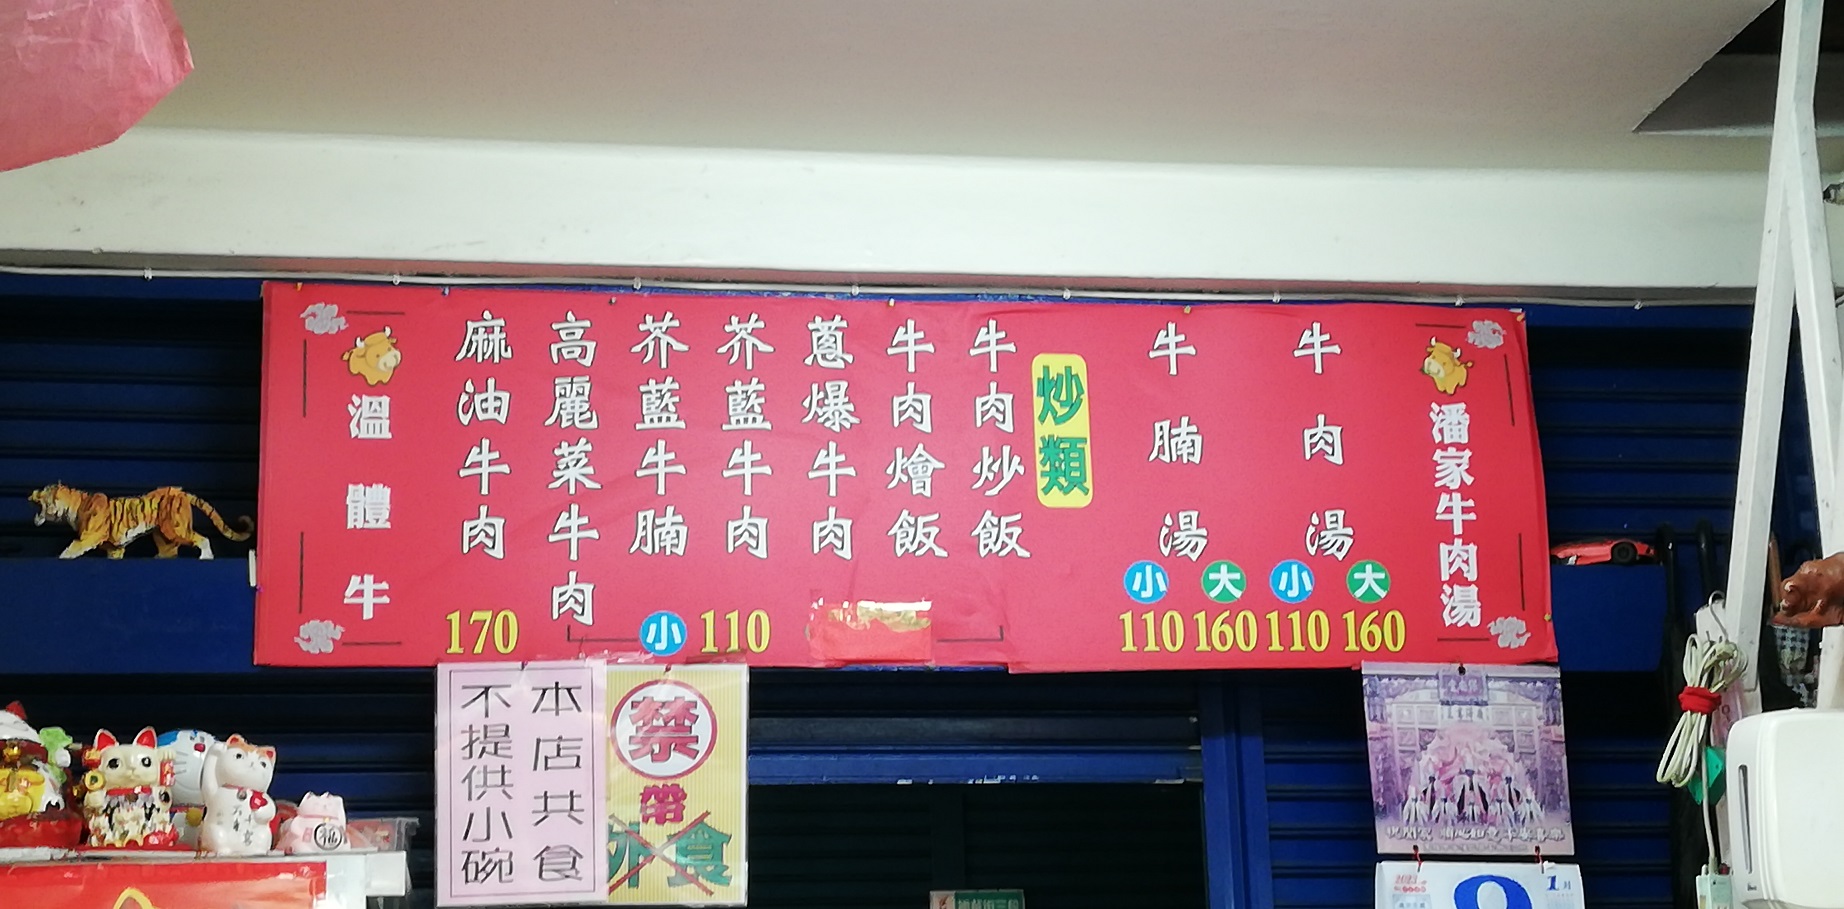 潘家牛肉湯
牛肉湯
小 大
110 160
牛腩湯
小 大
110 160
炒類
牛肉炒飯
牛肉燴飯
蔥爆牛肉
芥藍牛肉
芥藍牛腩
高麗菜牛肉
小 110
麻油牛肉
170
溫體牛
本店共食
不提供小碗
禁
帶
外食
1月